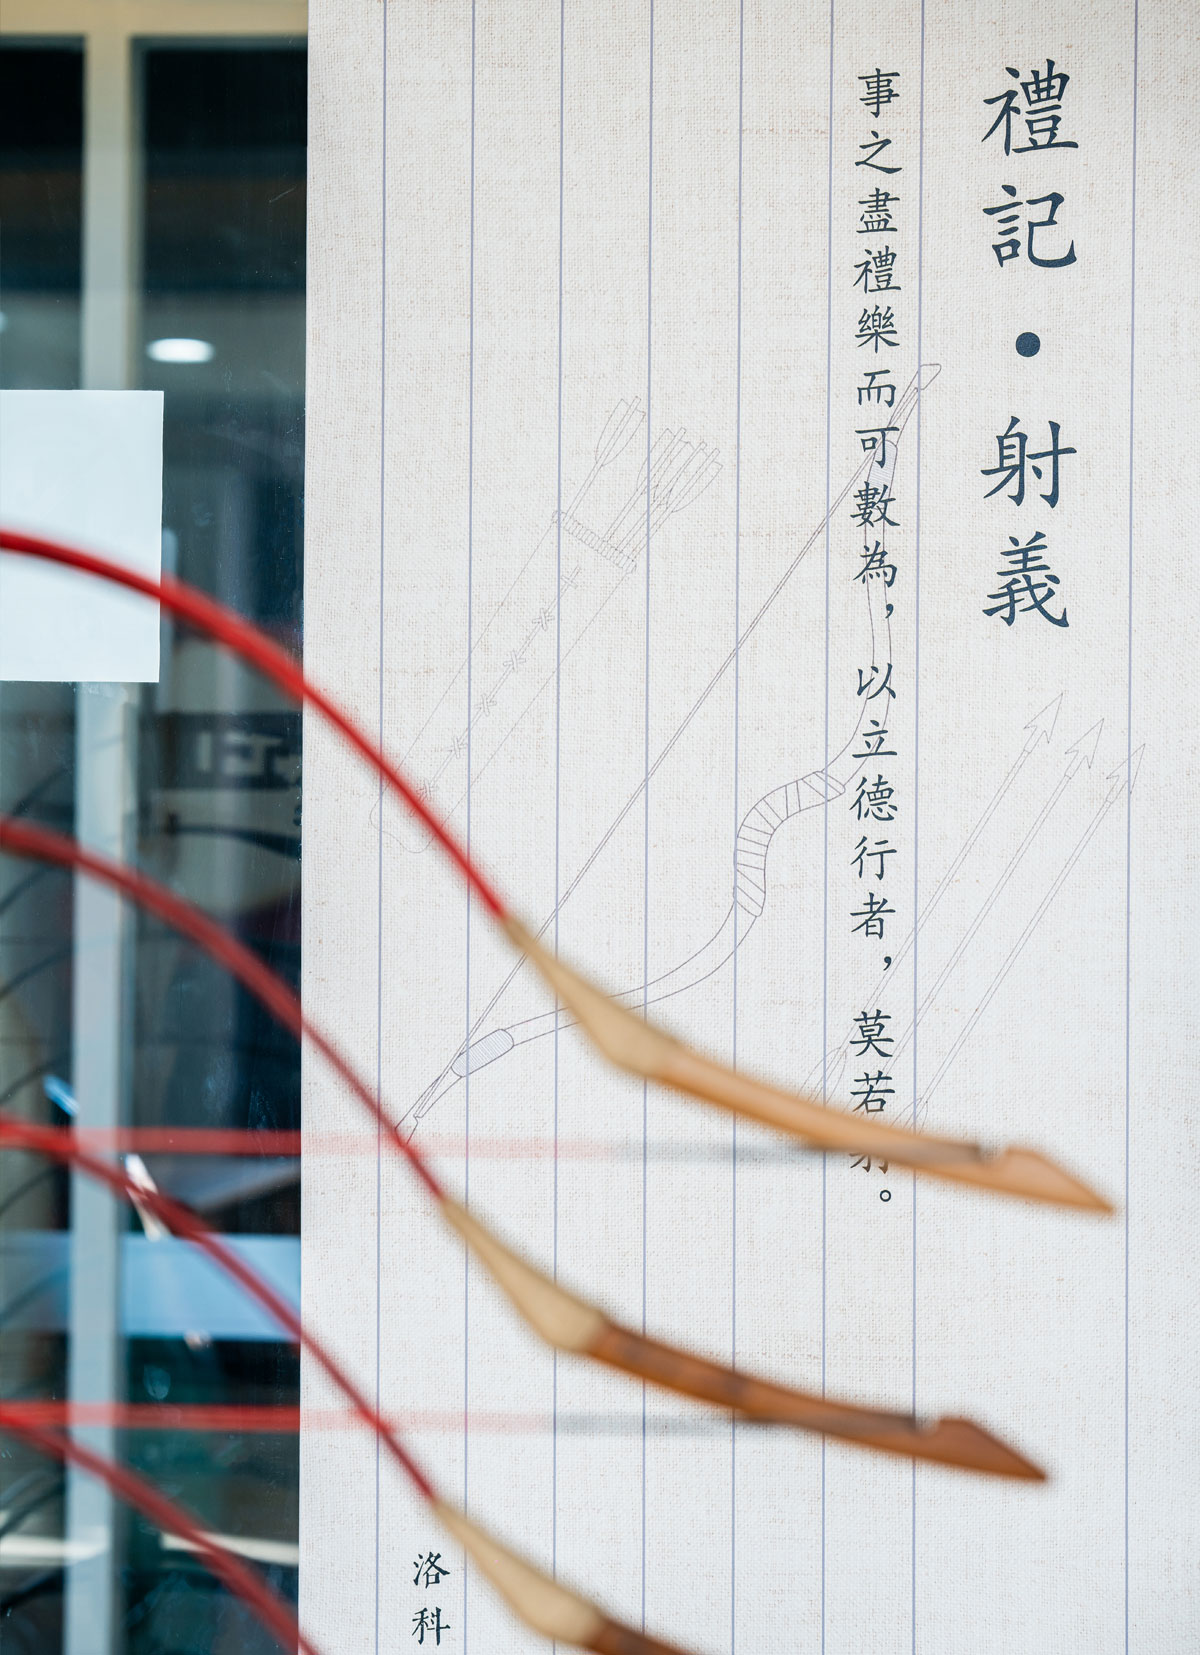 禮記·射義
事之盡禮樂而可數為，以立德行者，莫若射。
洛科